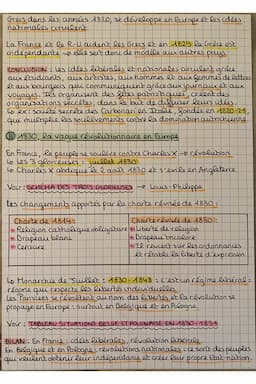 Grecs dans les années 1820, se développe en Europe et les idées
nationales circulent
La France et le R-U aident les Grecs et en 1829 la Grèce est
indépendante → elle sert donc de modèle aux autres pays
CONCLUSION : les idées libérales et nationales circulent grâce
aux étudiants, aux artistes, aux hommes et aux femmes de lettres
et aux bourgeois qui communiquent grâce aux journaux et aux
voyages. Ils organisent des fêtes patriotiques, créent des
organisations secrètes, dans le but de diffuser leurs idées.
la ex : société secrète des Carbonari en Italie, fondée en
que multiplie les soulèvements contre la domination autrichienne
1830, la vague révolutionnaire en Europe
En France, le peuple se soulève contre Charles X → révolution
Les 3 glorieuses : juillet 1830
Charles X abdique le 2 août 1830 et s'exile en Angleterre
Voir : SCHÉMA DES TROIS GLORIEUSES → Louis-Philippe
Les changements apportés par la charte révisée de 1830 :
Charte de 1814 :
Religion catholique obligatoire
Drapeau blanc
Censure
Charte révisée de 1830 :
Liberté de religion
Drapeau tricolore
Il revient sur les ordonnances
et rétablie la liberté d'expression
Monarchie de Juillet : 1830 - 1848 : c'est un régime libéral :
régime qui respecte les libertés individuelles
Les Parisiens se révoltent au nom des libertés et la révolution se
propage en Europe : surtout en Belgique et en Pologne.
Voir : TABLEAU SITUATIONS BELGE ET POLONAISE EN 1830-1831
BILAN : En France : idées libérales, révolution libérale
En Belgique et en Pologne : révolutions nationales : ce sont des peuples
qui veulent obtenir leur indépendance et créer leur propre État-nation.